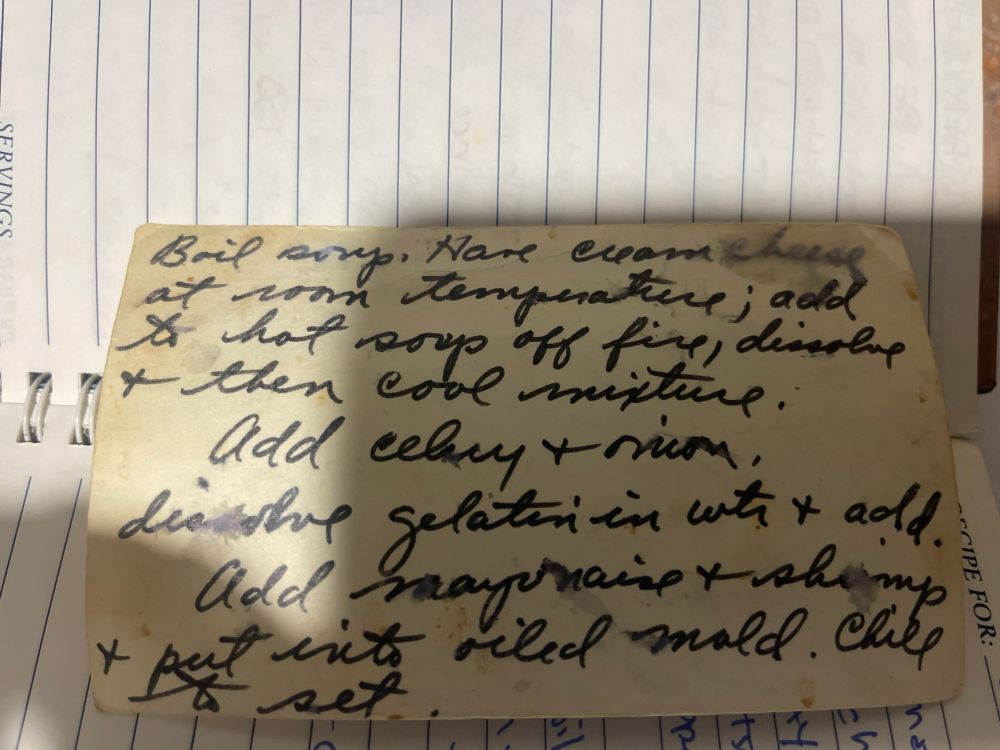 SERVINGS
Boil soup. Have cream cheese
at room temperature; add
to hot soup off fire, dissolve
+ then cool mixture.
Add celery + onion,
dissolve gelatin in wtr + add.
Add mayonaise + shrimp
+ put into oiled mold. Chill
to set.
RECIPE FOR: